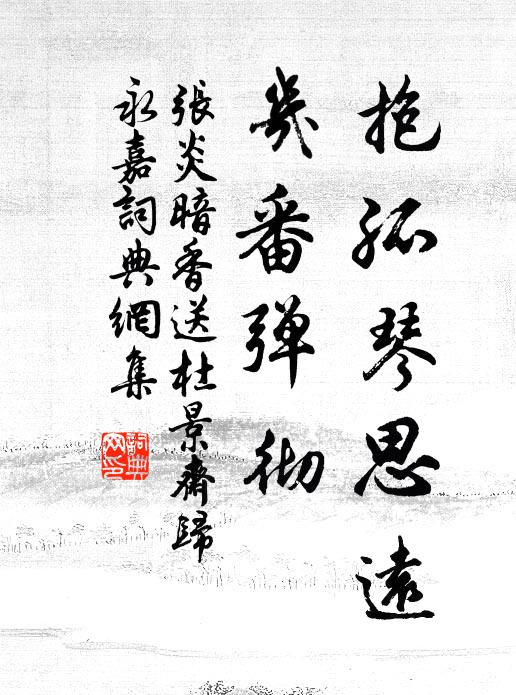 抱孤琴思遠
幾番弹彻
張炎暗香送杜景齋歸
永嘉詞典網集
詞典网印